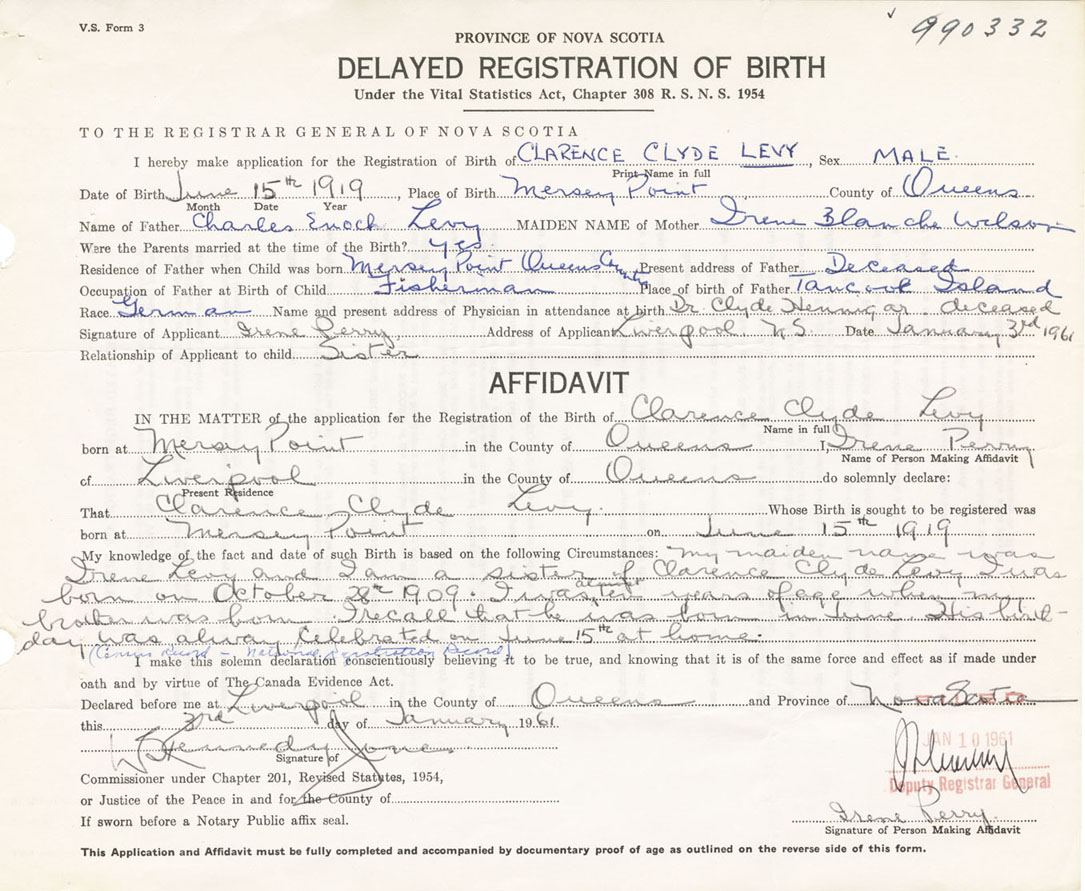 V.S. Form 3
990332
PROVINCE OF NOVA SCOTIA
DELAYED REGISTRATION OF BIRTH
Under the Vital Statistics Act, Chapter 308 R. S. N. S. 1954
TO THE REGISTRAR GENERAL OF NOVA SCOTIA
I hereby make application for the Registration of Birth of CLARENCE CLYDE LEVY, Sex MALE.
Print Name in full
Date of Birth June 15th 1919, Place of Birth Mersey Point, County of Queens
Month Date Year
Name of Father Charles Enoch Levy MAIDEN NAME of Mother Irene Blanche Wilson
Were the Parents married at the time of the Birth? yes
Residence of Father when Child was born Mersey Point Queens County Present address of Father Deceased
Occupation of Father at Birth of Child Fisherman Place of birth of Father Tancook Island
Race German Name and present address of Physician in attendance at birth Dr Clyde Hennigar. deceased
Signature of Applicant Irene Perry Address of Applicant Liverpool. N.S. Date January 3rd 1961
Relationship of Applicant to child Sister
AFFIDAVIT
IN THE MATTER of the application for the Registration of the Birth of Clarence Clyde Levy
Name in full
born at Mersey Point in the County of Queens I, Irene Perry
Name of Person Making Affidavit
of Liverpool in the County of Queens do solemnly declare:
Present Residence
That Clarence Clyde Levy. Whose Birth is sought to be registered was
born at Mersey Point on June 15th 1919
My knowledge of the fact and date of such Birth is based on the following Circumstances: my maiden name was
Irene Levy and I am a sister of Clarence Clyde Levy I was
born on October 28th 1909. I was almost ten years of age when my
brother was born. I recall that he was born in June His birth-
day was alway celebrated on June 15th at home.
(Census Record - National Registration Record)
I make this solemn declaration conscientiously believing it to be true, and knowing that it is of the same force and effect as if made under
oath and by virtue of The Canada Evidence Act.
Declared before me at Liverpool in the County of Queens and Province of Nova Scotia
this 3rd day of January 1961
JAN 10 1961
W Kennedy Jones
Signature of
Commissioner under Chapter 201, Revised Statutes, 1954,
Deputy Registrar General
or Justice of the Peace in and for the County of
Irene Perry.
If sworn before a Notary Public affix seal.
Signature of Person Making Affidavit
This Application and Affidavit must be fully completed and accompanied by documentary proof of age as outlined on the reverse side of this form.